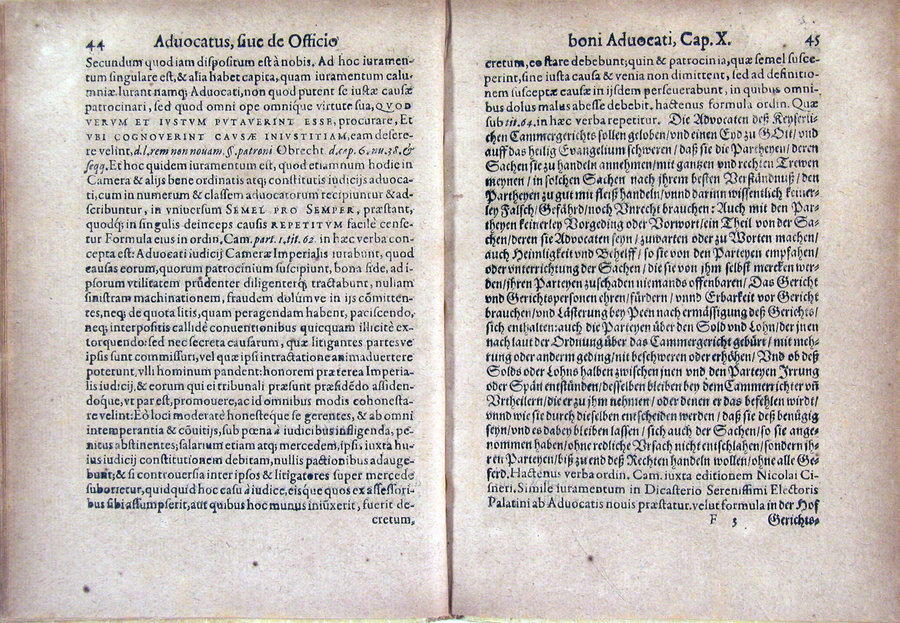 44 Advocatus, siue de Officio
Secundum quod iam dispositum est à nobis. Ad hoc iuramen-
tum singulare est, & alia habet capita, quam iuramentum calu-
mniæ. Iurant namq; Aduocati, non quod putent se iustæ causæ
patrocinari, sed quod omni ope omnique virtute sua, QVOD
VERVM ET IVSTVM PVTAVERINT ESSE, procurare, Et
VBI COGNOVERINT CAVSÆ INIVSTITIAM, eam desere-
re velint, d.l. rem non nouam. §. patroni Obrecht d. cap. 6. nu. 38. &
seqq. Et hoc quidem iuramentum est, quod etiamnum hodie in
Camera & alijs bene ordinatis atq; constitutis iudicijs aduoca-
ti, cum in numerum & classem aduocatorum recipiuntur & ad-
scribuntur, in vniuersum SEMEL PRO SEMPER, præstant,
quodq; in singulis deinceps causis REPETITVM facile cense-
tur Formula eius in ordin. Cam. part. 1. tit. 62. in hæc verba con-
cepta est: Aduocati iudicij Cameræ Imperialis iurabunt, quod
causas eorum, quorum patrocinium suscipiunt, bona fide, ad i-
psorum vtilitatem prudenter diligenterq; tractabunt, nullam
sinistram machinationem, fraudem dolúmve in ijs cōmitten-
tes, neq; de quota litis, quam peragendam habent, paciscendo,
neq; interpositis callidè conuentionibus quicquam illicitè ex-
torquendo: sed nec secreta causarum, quæ litigantes partes ve
ipsis sunt commissuri, vel quæ ipsi intractatione animaduertere
poterunt, vlli hominum pandent: honorem præterea Imperia-
lis iudicij, & eorum qui ei tribunali præsunt præsidēdo assiden-
doque, vt par est, promouere, ac id omnibus modis cohonesta-
re velint: Eò loci moderatè honesteque se gerentes, & ab omni
intemperantia & cōuitijs, sub pœna à iudicibus infligenda, pe-
nitus abstinentes; salarium etiam atq; mercedem, ipsis iuxta hu-
ius iudicij constitutionem debitam, nullis pactionibus adauge-
bunt; & si controuersia inter ipsos & litigatores super mercede
suboriretur, quidquid hoc casu à iudice, eisque quos ex assessori-
bus sibi assumpserit, aut quibus hoc munus iniūxerit, fuerit de-
cretum,
boni Advocati, Cap. X. 45
cretum, eo stare debebunt; quin & patrocinia, quæ semel susce-
perint, sine iusta causa & venia non dimittent, sed ad definitio-
nem susceptæ causæ in ijsdem perseuerabunt, in quibus omni-
bus dolus malus abesse debebit. hactenus formula ordin. Quæ
sub tit. 64. in hæc verba repetitur. Die Advocaten deß Keyserli-
chen Cammergerichts sollen geloben / vnd einen Eyd zu GOtt / vnd
auff das heilig Evangelium schweren / daß sie die Partheyen / deren
Sachen sie zu handeln annehmen / mit gantzen vnd rechten Trewen
meynen / in solchen Sachen nach jhrem besten Verständnuß / den
Partheyen zu gut mit fleiß handeln / vnnd darinn wissentlich keiner-
ley Falsch / Gefährd / noch Vnrecht brauchen: Auch mit den Par-
theyen keinerley Vorgeding oder Vorwort / ein Theil von der Sa-
chen / deren sie Advocaten seyn / zuwarten oder zu Worten machen /
auch Heimligkeit vnd Behelff / so sie von den Parteyen empfahen /
oder vnterrichtung der Sachen / die sie von jhm selbst mercken wer-
den / jhren Parteyen zuschaden niemands offenbaren / Das Gericht
vnd Gerichtspersonen ehren / fürdern / vnnd Erbarkeit vor Gericht
brauchen / vnd Lästerung bey Peen nach ermässigung deß Gerichts /
sich enthalten: auch die Parteyen über den Sold vnd Lohn / der jnen
nach laut der Ordnung über das Cammergericht gebürt / mit meh-
rung oder anderm geding / nit beschweren oder erhöhen / Vnd ob deß
Solds oder Lohns halben zwischen jnen vnd den Parteyen Irrung
oder Spän entstünden / desselben bleiben bey dem Cammerrichter vñ
Vrtheilern / die er zu jhm nehmen / oder denen er das befehlen wirdt /
vnnd wie sie durch dieselben entscheiden werden / daß sie deß benügig
seyn / vnd es dabey bleiben lassen / sich auch der Sachen / so sie ange-
nommen haben / ohne redliche Vrsach nicht entschlahen / sondern ih-
ren Parteyen / biß zu end deß Rechten handeln wollen / ohne alle Ge-
ferd. Hactenus verba ordin. Cam. iuxta editionem Nicolai Ci-
sneri. Simile iuramentum in Dicasterio Serenissimi Electoris
Palatini ab Aduocatis nouis præstatur. velut formula in der Hof
F 3 Gerichts-